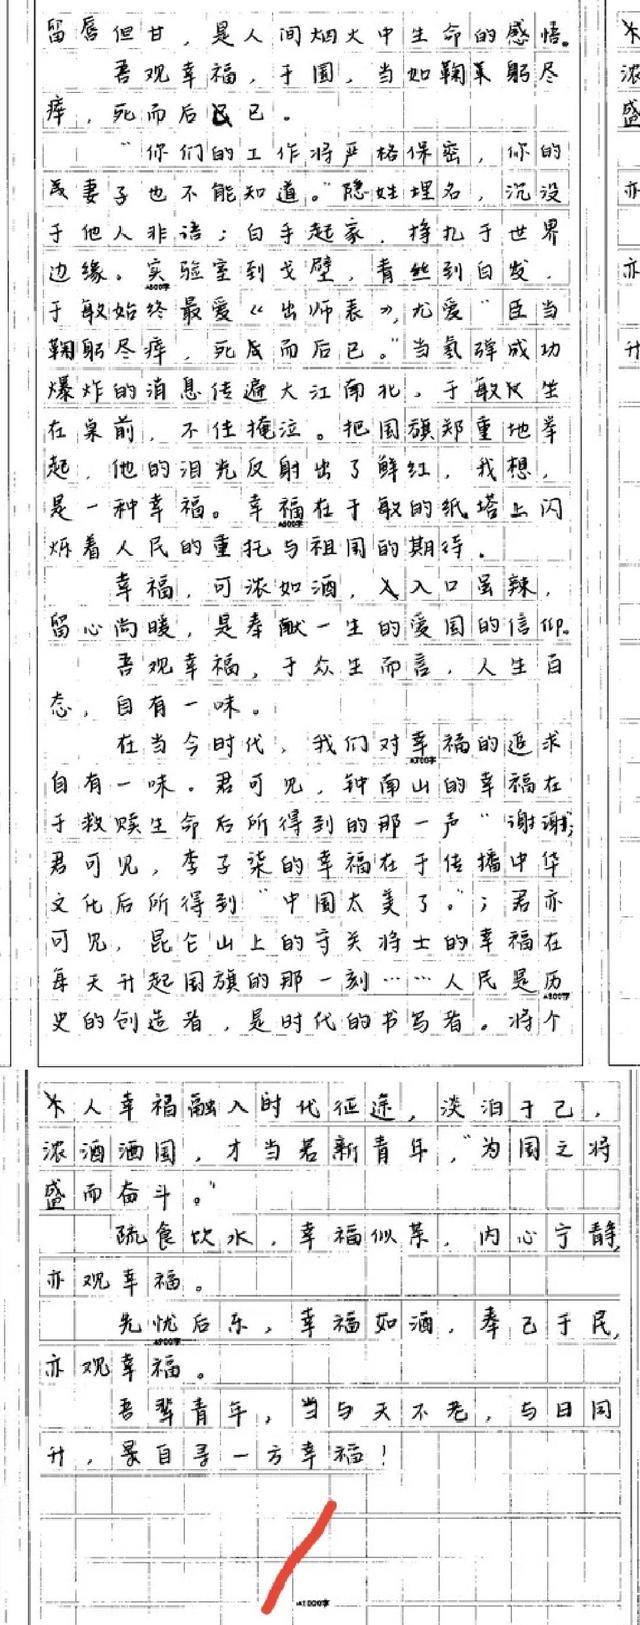 留唇但甘，是人间烟火中生命的感悟。
吾观幸福，于国，当如鞠躬尽
瘁，死而后已。
“你们的工作将严格保密，你的
妻子也不能知道。”隐姓埋名，沉没
于他人非语；白手起家，挣扎于世界
边缘。实验室到戈壁，青丝到白发，
A500字
于敏始终最爱《出师表》，尤爱“臣当
鞠躬尽瘁，死而后已。”当氢弹成功
爆炸的消息传遍大江南北，于敏坐
在桌前，不住掩泣。把国旗郑重地举
起，他的泪光反射出了鲜红，我想，
是一种幸福。幸福在于敏的纸塔上闪
A600字
烁着人民的重托与祖国的期待。
幸福，可浓如酒，入口虽辣，
留心尚暖，是奉献一生的爱国的信仰。
吾观幸福，于众生而言，人生百
态，自有一味。
在当今时代，我们对幸福的追求
A700字
自有一味。君可见，钟南山的幸福在
于救赎生命后所得到的那一声“谢谢”；
君可见，李子柒的幸福在于传播中华
文化后所得到“中国太美了。”；君亦
可见，昆仑山上的守关将士的幸福在
每天升起国旗的那一刻……人民是历
A800字
史的创造者，是时代的书写者。将个
人幸福融入时代征途，淡泊于己，
浓酒洒国，才当若新青年，“为国之将
盛而奋斗。”
疏食饮水，幸福似茶，内心宁静，
亦观幸福。
先忧后乐，幸福如酒，奉己于民，
A900字
亦观幸福。
吾辈青年，当与天不老，与日同
升，最自寻一方幸福！
A1000字